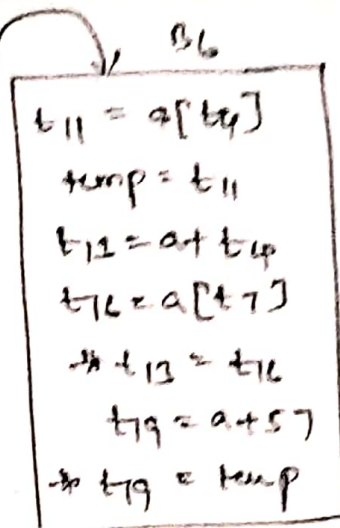 B6
t11 = a[t4]
temp = t11
t12 = a + t4
t16 = a[t7]
* t13 = t16
t19 = a + 57
* t19 = temp